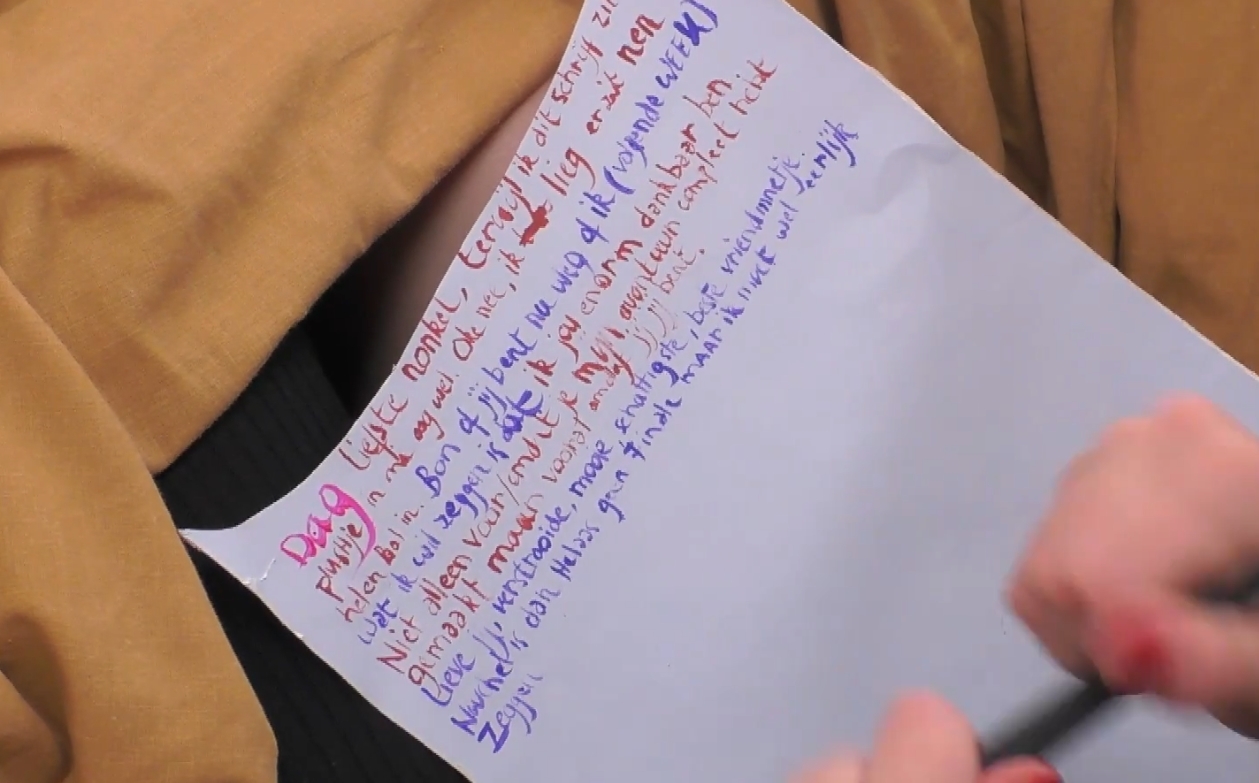 Dag liefste nonkel, terwijl ik dit schrijf
plusje in mij oog wel. Oke nee, ik lieg er zat nen
helen bal in. Bon of jij bent nu weg of ik (volgende WEEK)
wat ik wil zeggen is dat ik jou enorm dankbaar ben
Niet alleen voor/omdat je mijn avontuur compleet hebt
gemaakt maar vooral omdat jij jij bent.
Lieve, verstrooide, mooie schattigste, beste vriendmnetje.
Nou het is dan Helaas geen finale MAAR ik moet wel eerlijk
zeggen